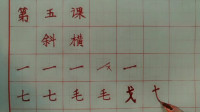 第五课
斜横
一 一 一 一 一
七 七 毛 毛 戈